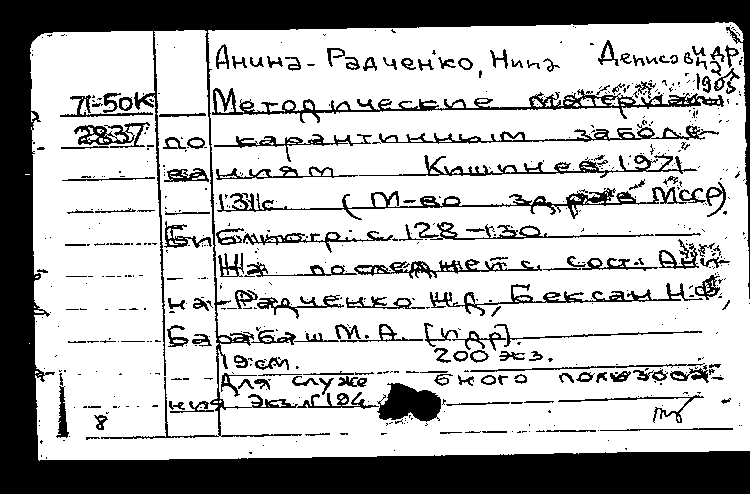 Анина-Радченко, Нина Денисов и др
1905
71-50К Методические материалы
2837 по карантинным заболе-
ваниям Кишинев, 1971
131с. (М-во здрав МССР)
Библиогр. с. 128-130.
На последней с. сост.: Ани-
на-Радченко Н.Д., Бексан Н.Ф,
Барабаш М.А. [и др].
19 см. 200 экз.
Для служе бного пользова-
ния Экз. № 194
8